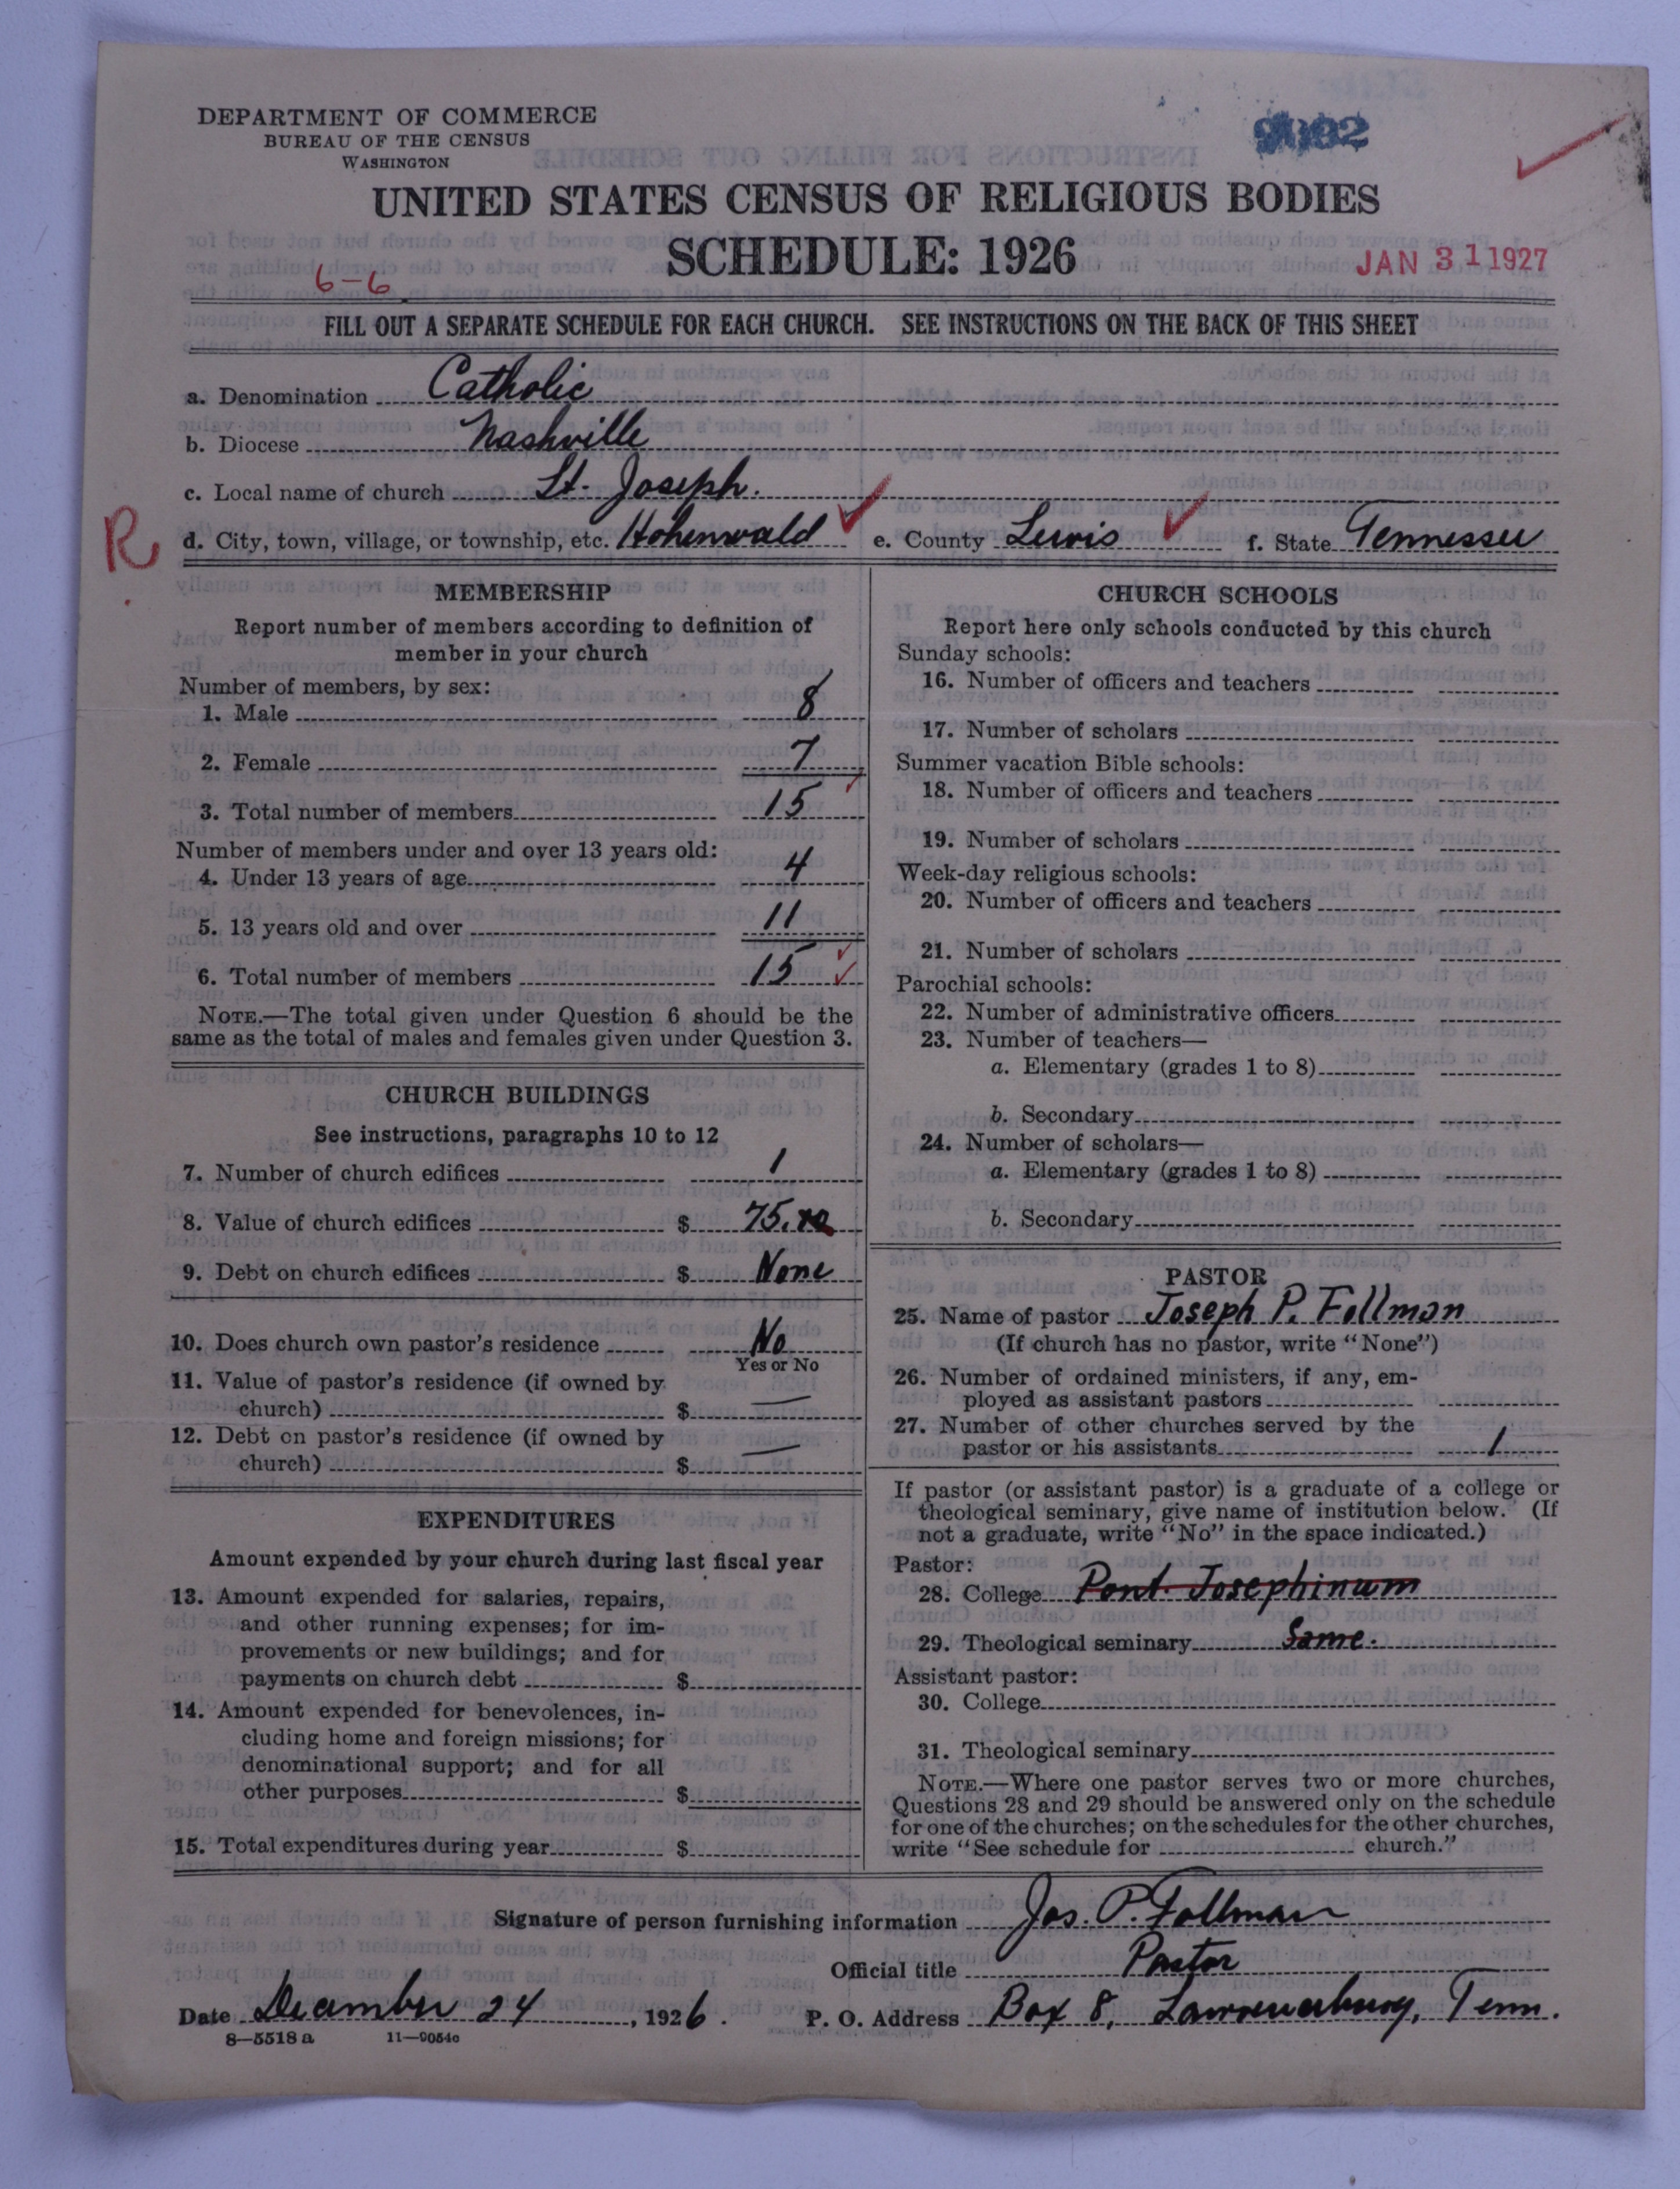 DEPARTMENT OF COMMERCE
BUREAU OF THE CENSUS
WASHINGTON
UNITED STATES CENSUS OF RELIGIOUS BODIES
SCHEDULE: 1926
JAN 31 1927
6-6
FILL OUT A SEPARATE SCHEDULE FOR EACH CHURCH. SEE INSTRUCTIONS ON THE BACK OF THIS SHEET
a. Denomination Catholic
b. Diocese Nashville
c. Local name of church St. Joseph.
R
d. City, town, village, or township, etc. Hohenwald e. County Lewis f. State Tennessee
MEMBERSHIP
Report number of members according to definition of
member in your church
Number of members, by sex:
1. Male 8
2. Female 7
3. Total number of members 15
Number of members under and over 13 years old:
4. Under 13 years of age 4
5. 13 years old and over 11
6. Total number of members 15
NOTE.—The total given under Question 6 should be the
same as the total of males and females given under Question 3.
CHURCH BUILDINGS
See instructions, paragraphs 10 to 12
7. Number of church edifices 1
8. Value of church edifices $ 75.
9. Debt on church edifices $ None
10. Does church own pastor's residence No
Yes or No
11. Value of pastor's residence (if owned by
church) $ —
12. Debt on pastor's residence (if owned by
church) $ —
EXPENDITURES
Amount expended by your church during last fiscal year
13. Amount expended for salaries, repairs,
and other running expenses; for im-
provements or new buildings; and for
payments on church debt $
14. Amount expended for benevolences, in-
cluding home and foreign missions; for
denominational support; and for all
other purposes $
15. Total expenditures during year $
CHURCH SCHOOLS
Report here only schools conducted by this church
Sunday schools:
16. Number of officers and teachers
17. Number of scholars
Summer vacation Bible schools:
18. Number of officers and teachers
19. Number of scholars
Week-day religious schools:
20. Number of officers and teachers
21. Number of scholars
Parochial schools:
22. Number of administrative officers
23. Number of teachers—
a. Elementary (grades 1 to 8)
b. Secondary
24. Number of scholars—
a. Elementary (grades 1 to 8)
b. Secondary
PASTOR
25. Name of pastor Joseph P. Follman
(If church has no pastor, write "None")
26. Number of ordained ministers, if any, em-
ployed as assistant pastors
27. Number of other churches served by the
pastor or his assistants 1
If pastor (or assistant pastor) is a graduate of a college or
theological seminary, give name of institution below. (If
not a graduate, write "No" in the space indicated.)
Pastor:
28. College Pont. Josephinum
29. Theological seminary Same.
Assistant pastor:
30. College
31. Theological seminary
NOTE.—Where one pastor serves two or more churches,
Questions 28 and 29 should be answered only on the schedule
for one of the churches; on the schedules for the other churches,
write "See schedule for church."
Signature of person furnishing information Jos. P. Follman
Official title Pastor
Date December 24, 1926. P. O. Address Box 8, Lawrenceburg, Tenn.
8-5518 a 11-9054c